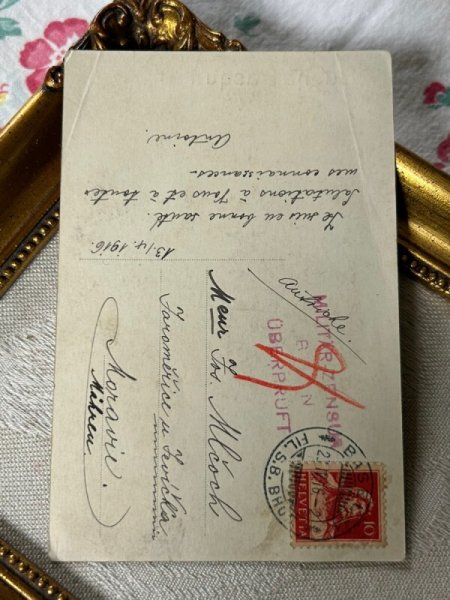 13./4. 1916.
Je suis en bonne santé.
Salutations à Tous et à toutes
mes connaissances.
Antoine.
Autriche.
MILITÄRZENSUR
ÜBERPRÜFT
BAS
FIL. S.B. BHO
HELVETIA
10
Meur Jos Mlčoch
Jaroměřice u Jevíčka
Moravie.
Mähren